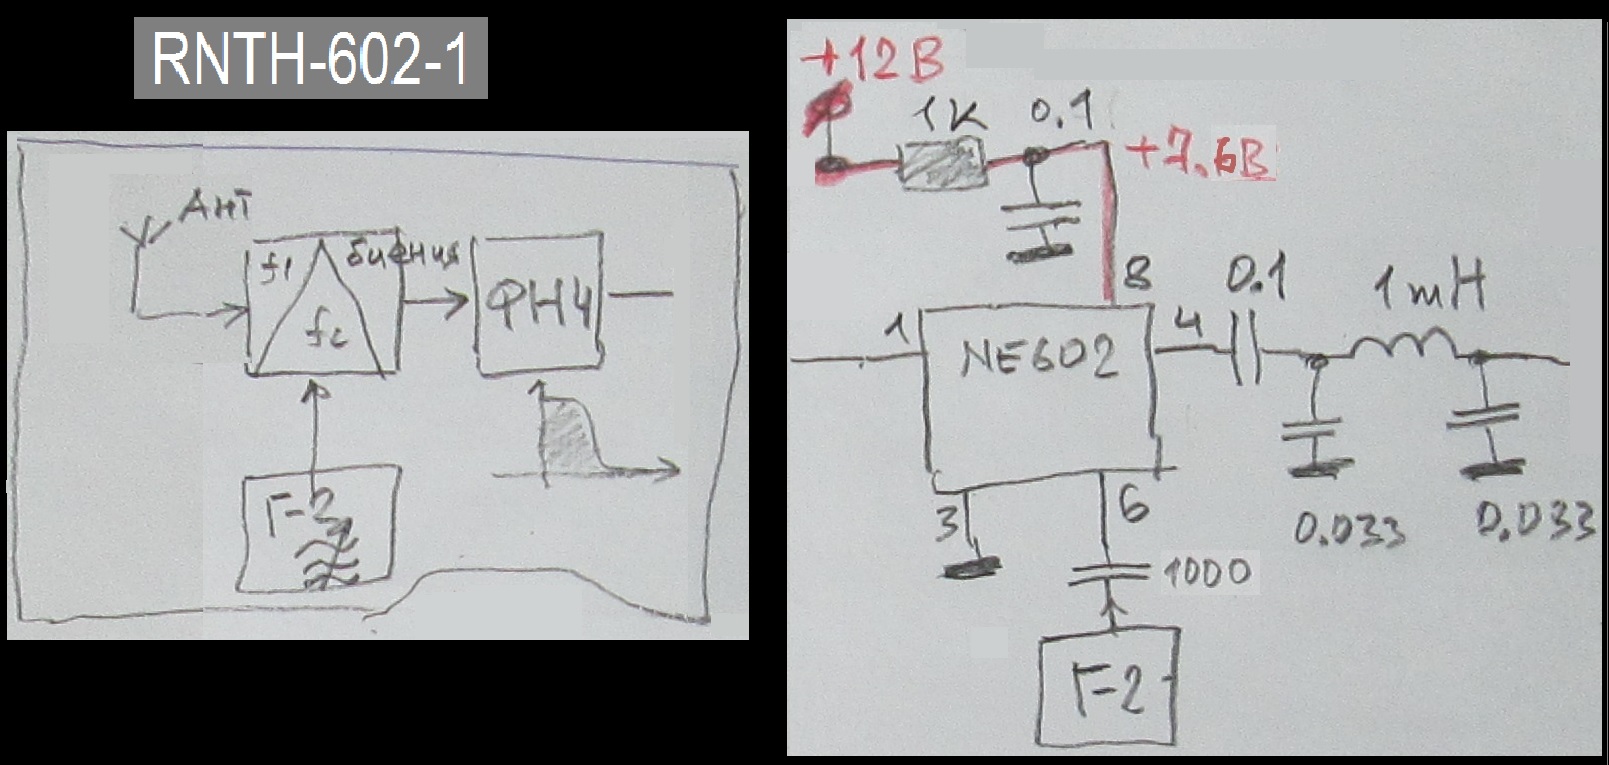 RNTH-602-1
Ант
f1
биения
f2
ФНЧ
Г-2
+12В
1К
0.1
+7.6В
8
0.1
1mH
1
NE602
4
3
6
0.033
0.033
1000
Г-2